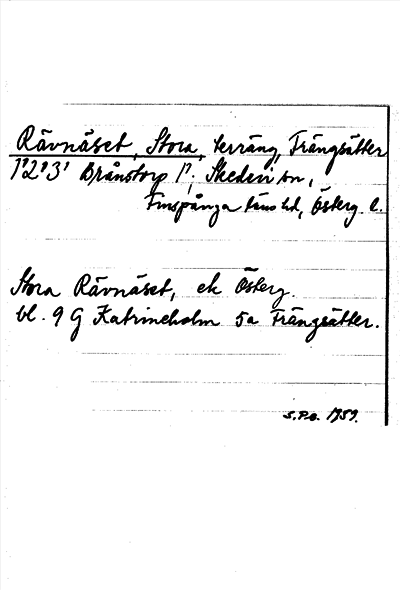 Rävnäset, Stora, terräng, Trängsätter
1²2²3¹ Brånstorp 1¹, Skedevi sn,
Finspånga läns hd, Österg. l.
Stora Rävnäset, ek Österg.
bl. 9 G Katrineholm 5a Trängsätter.
S.P.O. 1959.